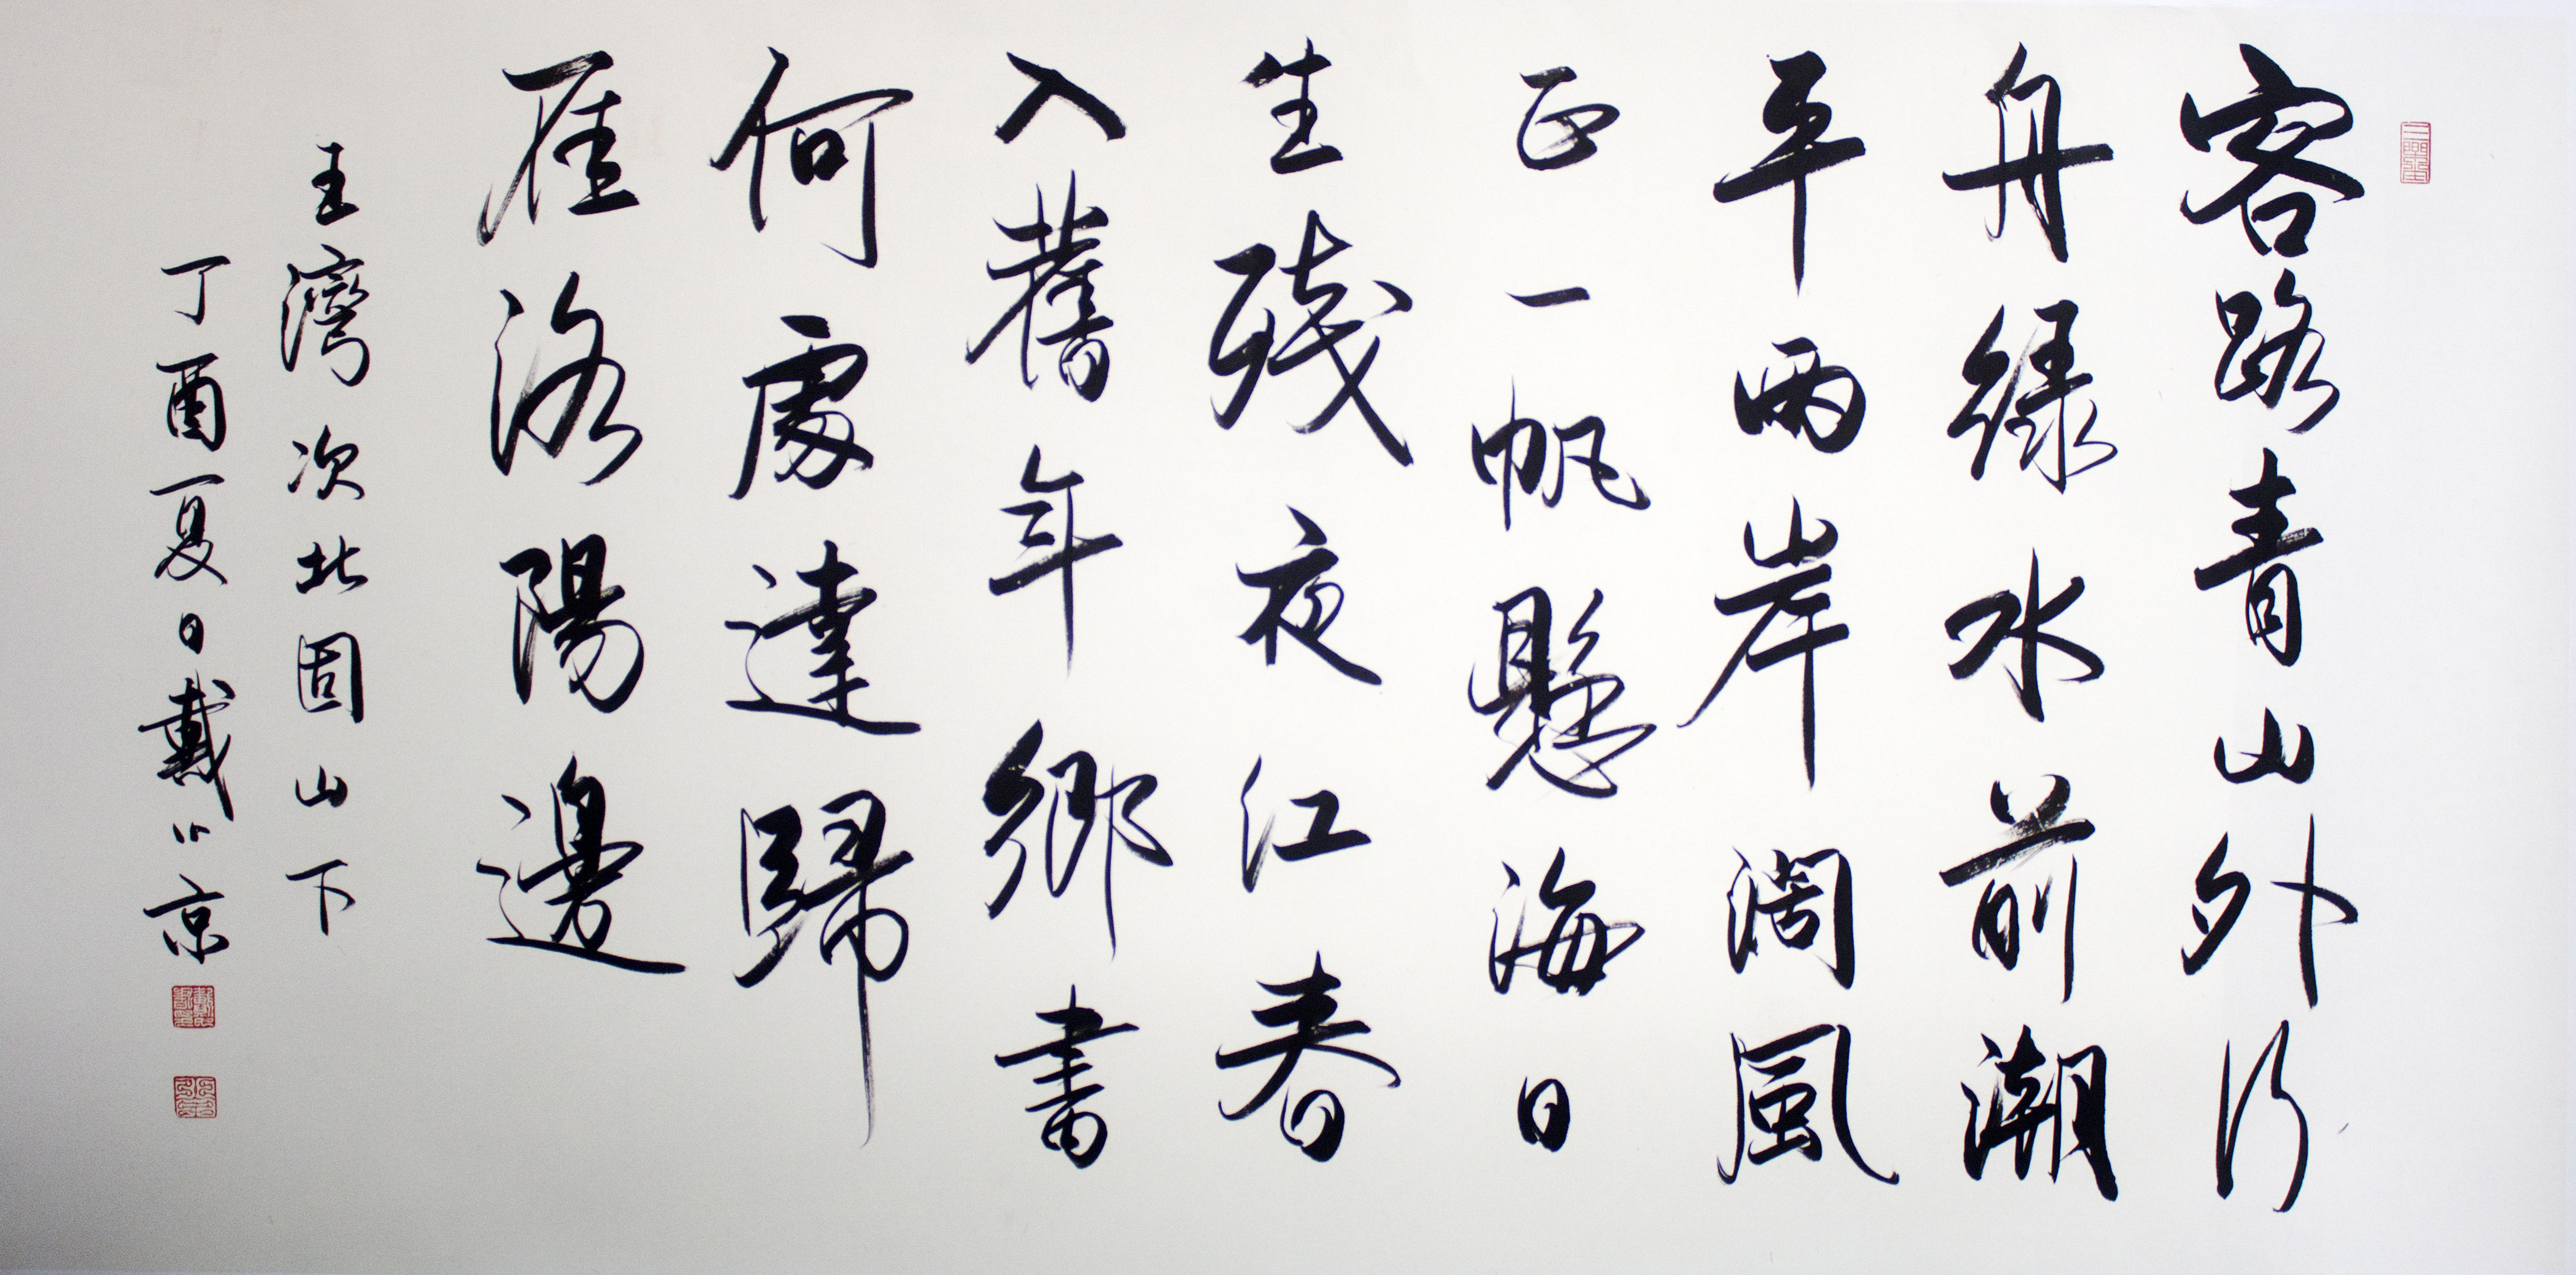 客路青山外行
舟綠水前潮
平兩岸闊風
正一帆懸海日
生殘夜江春
入舊年鄉書
何處達歸
雁洛陽邊
王灣次北固山下
丁酉夏日戴京